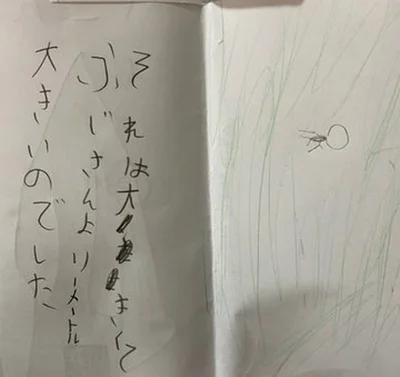 それは大きくて
ふじさんより一メートル
大きいのでした